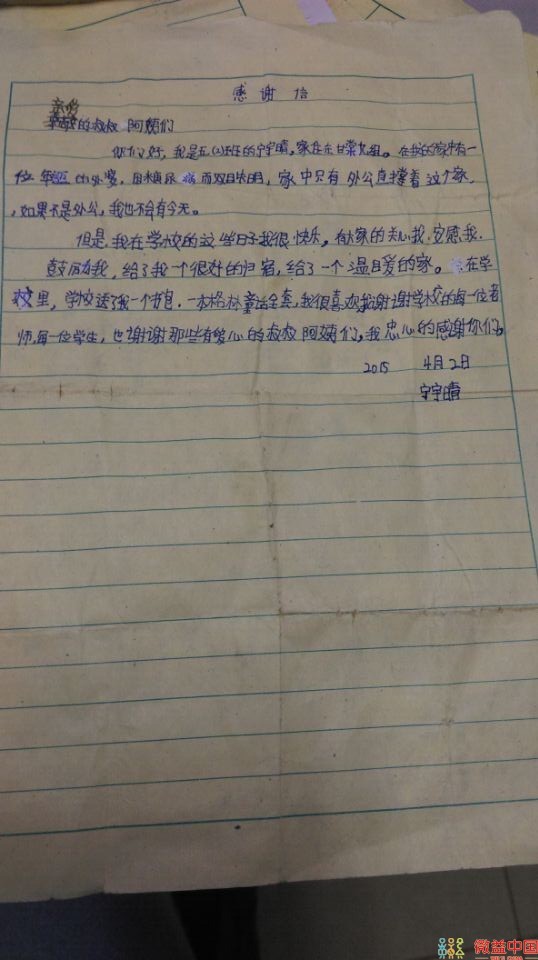 感谢信
亲爱的叔叔阿姨们
你们好,我是五(2)班的宁宇晴,家住在甘棠九组。在我的家中有一
位年迈的外婆,因糖尿病而双目失明,家中只有外公直撑着这个家
,如果不是外公,我也不会有今天。
但是,我在学校的这些日子我很快乐。有大家的关心我.安慰我.
鼓励我,给了我一个很好的归宿,给了一个温暖爱的家。在学
校里,学校送了我一个书包.一本格林童话全套,我很喜欢,我谢谢学校的每一位老
师,每一位学生,也谢谢那些有爱心的叔叔阿姨们,我忠心的感谢你们。
2015 4月2日
宁宇晴
微益中国